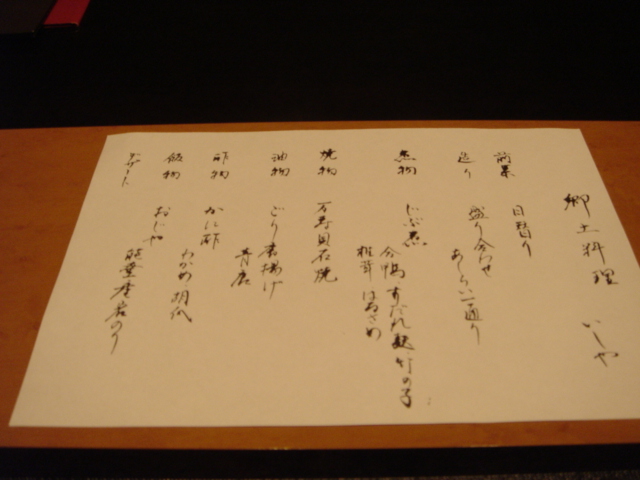 郷土料理 いしや
前菜 日替り
造り 盛り合わせ
あしらい一通り
煮物 じぶ煮
合鴨、すだれ麩、竹の子
椎茸 はるさめ
焼物 万寿貝石焼
油物 ごり唐揚げ
青唐
酢物 かに酢
わかめ 胡瓜
飯物 おじや
能登産岩のり
デザート